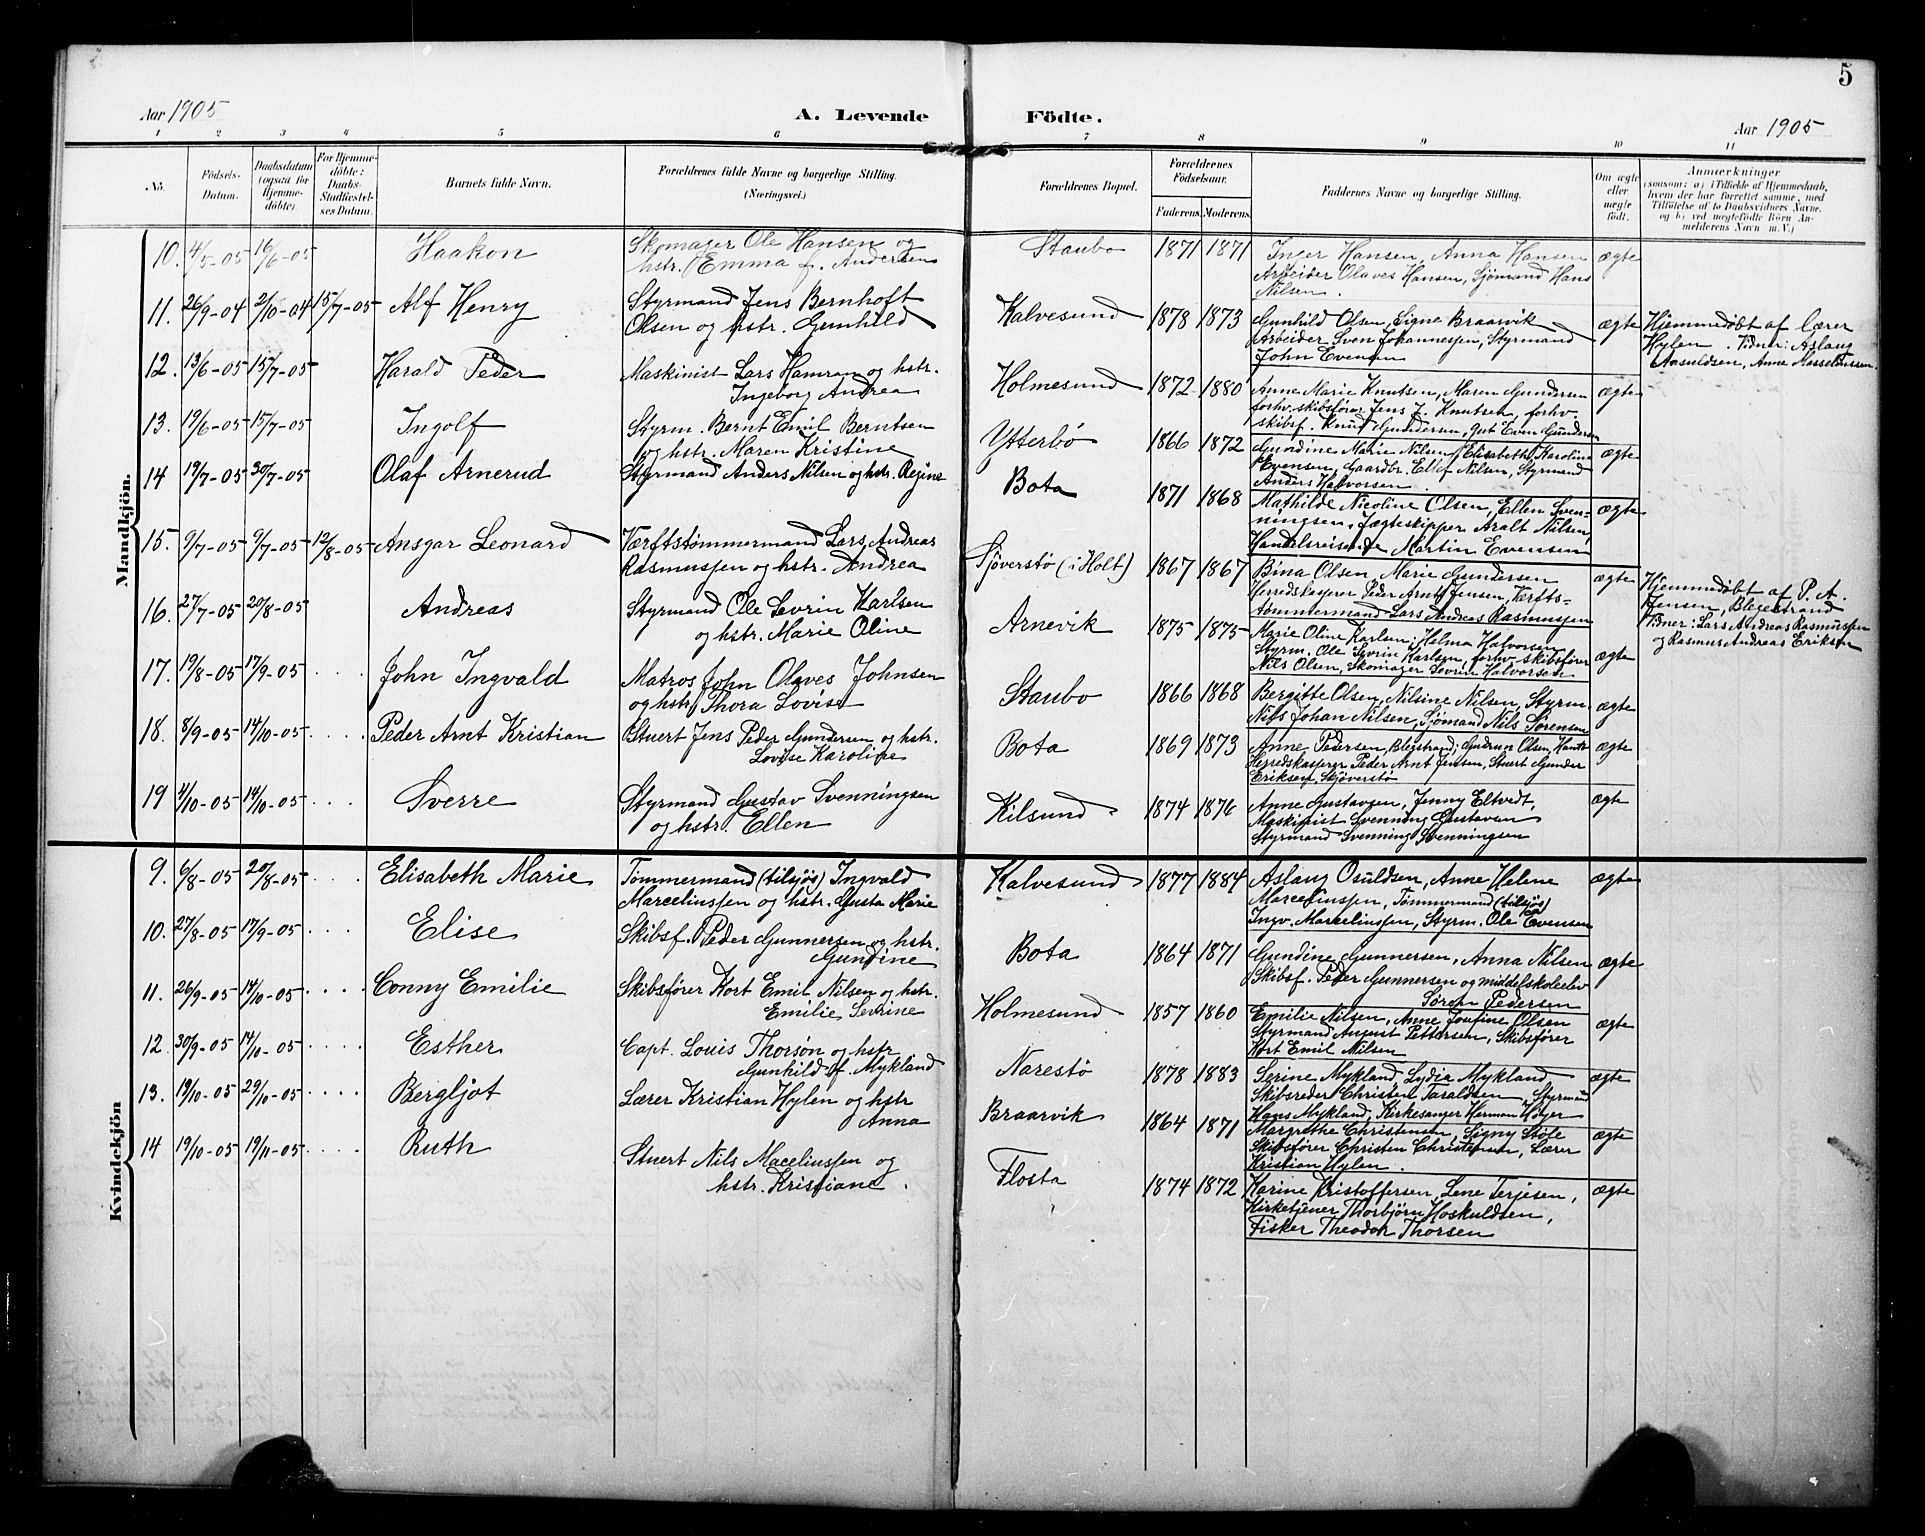 5
Aar 1905
A. Levende
Födte.
Aar 1905
1 2 3 4 5 6 7 8 9 10 11
No.
Födsels-
Datum.
Daabsdatum
(ogsaa for
Hjemme-
döbte).
For Hjemme-
döbte:
Daabs-
Stadfæstel-
ses Datum.
Barnets fulde Navn.
Forældrenes fulde Navne og borgerlige Stilling.
(Næringsvei.)
Forældrenes Bopæl.
Forældrenes
Födselsaar.
Faderens. Moderens.
Faddernes Navne og borgerlige Stilling.
Om ægte
eller
uægte
födt.
Anmærkninger
(saasom: a) i Tilfælde af Hjemmedaab,
hvem der har forrettet samme, med
Tilföielse af to Daabsvidners Navne,
og b) ved uægtefödte Börn An-
melderens Navn m. V.)
Mandkjön.
10. 4/5-05 16/6-05 Haakon
Skomager Ole Hansen og
hstr. Emma f. Andersen
Staubo 1871 1871
Inger Hansen, Anna Hansen
Arbeider Olaves Hansen, Sjömand Hans
Nilsen.
ægte
11. 26/9-04 2/10-04 15/7-05 Alf Henry
Styrmand Jens Bernhoft
Olsen og hstr. Gunhild
Kalvesund 1878 1873
Gunhild Olsen, Signe Braarvik
Arbeider Sven Johannessen, Styrmand
John Evensen
ægte
Hjemmedøbt af Lærer
Hylen. Vidner: Aslaug
Aasuldsen, Anne
12. 13/6-05 15/7-05 Harald Peder
Maskinist Lars Hamran og hstr.
Ingeborg Andrea
Holmesund 1872 1880
Anne Marie Knutsen, Maren Gundersen
forhv. skibsfører Jens J. Knutsen, forhv.
skibsf. Knud Gundersen, Even Gundersen
ægte
13. 19/6-05 15/7-05 Ingolf
Styrm. Bernt Emil Berntsen
og hstr. Maren Kristine
Ytterbö 1866 1872
Gundine Marie Nilsen, Elisabeth Karoline
Evensen, Gaardbr. Ellef Nilsen, Styrmand
Anders Halvorsen.
ægte
14 19/7-05 30/7-05 Olaf Arnerud
Styrmand Anders Nilsen og hstr. Regine
Bota 1871 1868
Mathilde Nicoline Olsen, Ellen Sven-
ningsen, Jægteskipper Aralt Nilsen,
Handelsreisende Martin Evensen
ægte
15. 9/7-05 9/7-05 12/8-05 Ansgar Leonard
Værftstømmermand Lars Andreas
Rasmussen og hstr. Andrea
Sjöverstö (i Holt) 1867 1867
Bina Olsen, Marie Gundersen
Herredskasserer Peder Arnt Jensen, Værfts-
tømmermand Lars Andreas Rasmussen
ægte
Hjemmedøbt af P. A.
Jensen, Blegestrand
Vidner: Lars Andreas Rasmussen
og Rasmus Andreas Eriksen
16. 27/7-05 20/8-05 Andreas
Styrmand Ole Sevrin Karlsen
og hstr. Marie Oline
Arnevik 1875 1875
Marie Oline Karlsen, Helma Halvorsen
Styrm. Ole Sevrin Karlsen, forhv. skibsfører
Nils Olsen, Skomager Sevrin Halvorsen
ægte
17. 19/8-05 17/9-05 .... John Ingvald
Matros John Olaves Johnsen
og hstr. Thora Lovise
Staubo 1866 1868
Bergitte Olsen, Nilsine Nilsen, Styrm.
Nils Johan Nilsen, Sjømand Nils Sørensen
ægte
18. 8/9-05 14/10-05 .... Peder Arnt Kristian
Stuert Jens Peder Gundersen og hstr.
Lovise Karoline
Bota 1869 1873
Anne Pedersen, Blegstrand, Gudrun Olsen,
Herredskasserer Peder Arnt Jensen, Stuert Gunder
Eriksen, Skjöverstö
ægte
19 4/10-05 14/10-05 ... Sverre
Styrmand Gustav Svenningsen
og hstr. Ellen
Kilsund 1874 1876
Anne Gustavsen, Jenny Eltvedt,
Maskinist Svenning Gustavsen
Styrmand Svenning Svenningsen
ægte
Kvindekjön
9. 6/8-05 20/8-05 .... Elisabeth Marie
Tømmermand (tilsjøs) Ingvald
Marcelinssen og hstr. Gusta Marie
Kalvesund 1877 1884
Aslaug Osuldsen, Anne Helene
Marcelinssen, Tømmermand (tilsjøs)
Ingv. Marcelinssen, Styrm. Ole Evensen
ægte
10. 27/8-05 17/9-05 ... Elise
Skibsf. Peder Gunnersen og hstr.
Gundine
Bota 1864 1871
Gundine Gunnersen, Anna Nilsen
Skibsf. Peder Gunnersen og middelskoleelev
Søren Pedersen
ægte
11. 26/9-05 14/10-05 .... Conny Emilie
Skibsfører Kort Emil Nilsen og hstr.
Emilie Sevrine
Holmesund 1857 1860
Emilie Nilsen, Anne Josfine Olsen
Styrmand August Pettersen, Skibsfører
Kort Emil Nilsen
ægte
12. 30/9-05 14/10-05 .... Esther
Capt. Louis Thorsøn og hstr
Gunhild f. Mykland
Narestö 1878 1883
Serine Mykland, Lydia Mykland
Skibsreder Christen Taraldsen, Styrmand
Hans Mykland, Kirkesanger Herman Höyer
ægte
13. 19/10-05 29/10-05 .... Bergljot
Lærer Kristian Hylen og hstr
Anna
Braarvik 1864 1871
Margrethe Christensen, Signy Støle
Skibsfører Christen Christensen, Lærer
Kristian Hylen.
ægte
14 19/10-05 19/11-05 .... Ruth
Stuert Nils Macelinssen og
hstr. Kristiane.
Flosta 1874 1872
Karine Kristoffersen, Lene Terjesen,
Kirketjener Thorbjörn Hoskuldsen,
Fisker Theodor Thorsen
ægte